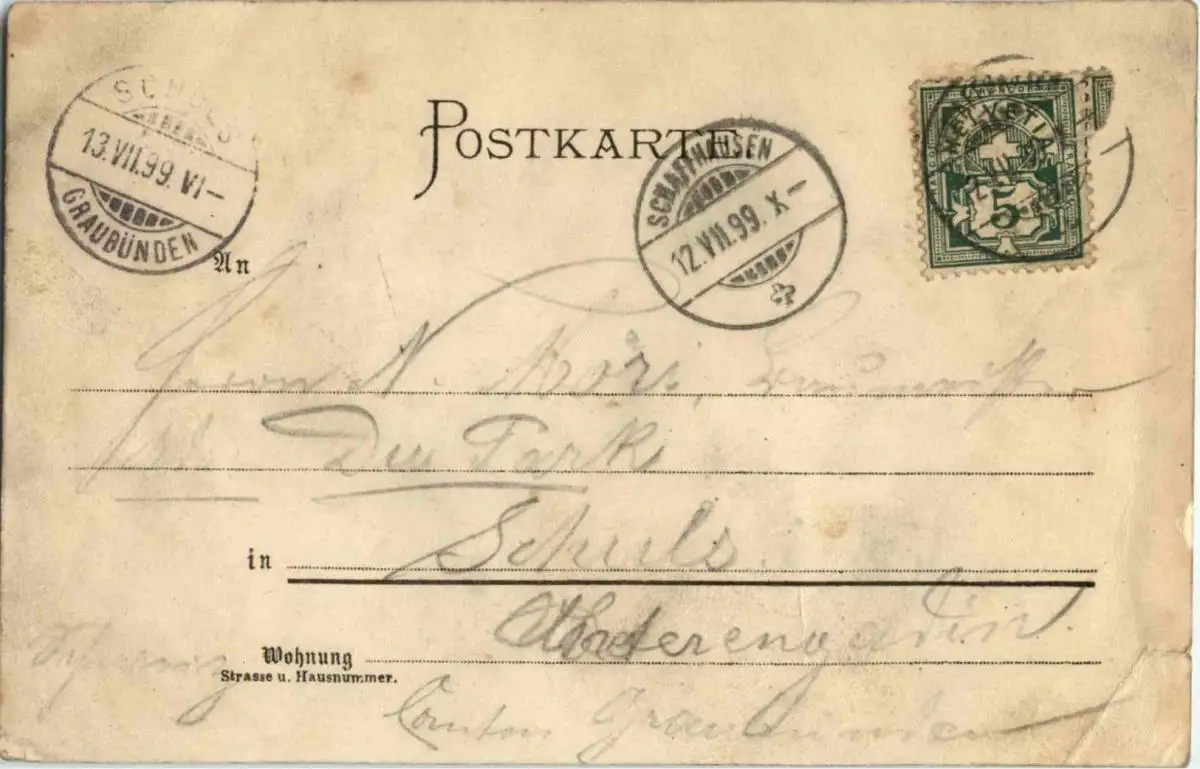 POSTKARTE
SCHULS
13.VII.99.VI–
GRAUBÜNDEN
SCHAFFHAUSEN
12.VII.99.X–
HELVETIA
5
An
Herrn A.
Du Park
in Schuls.
Unterengadin.
Wohnung
Strasse u. Hausnummer.
Canton Graubünden